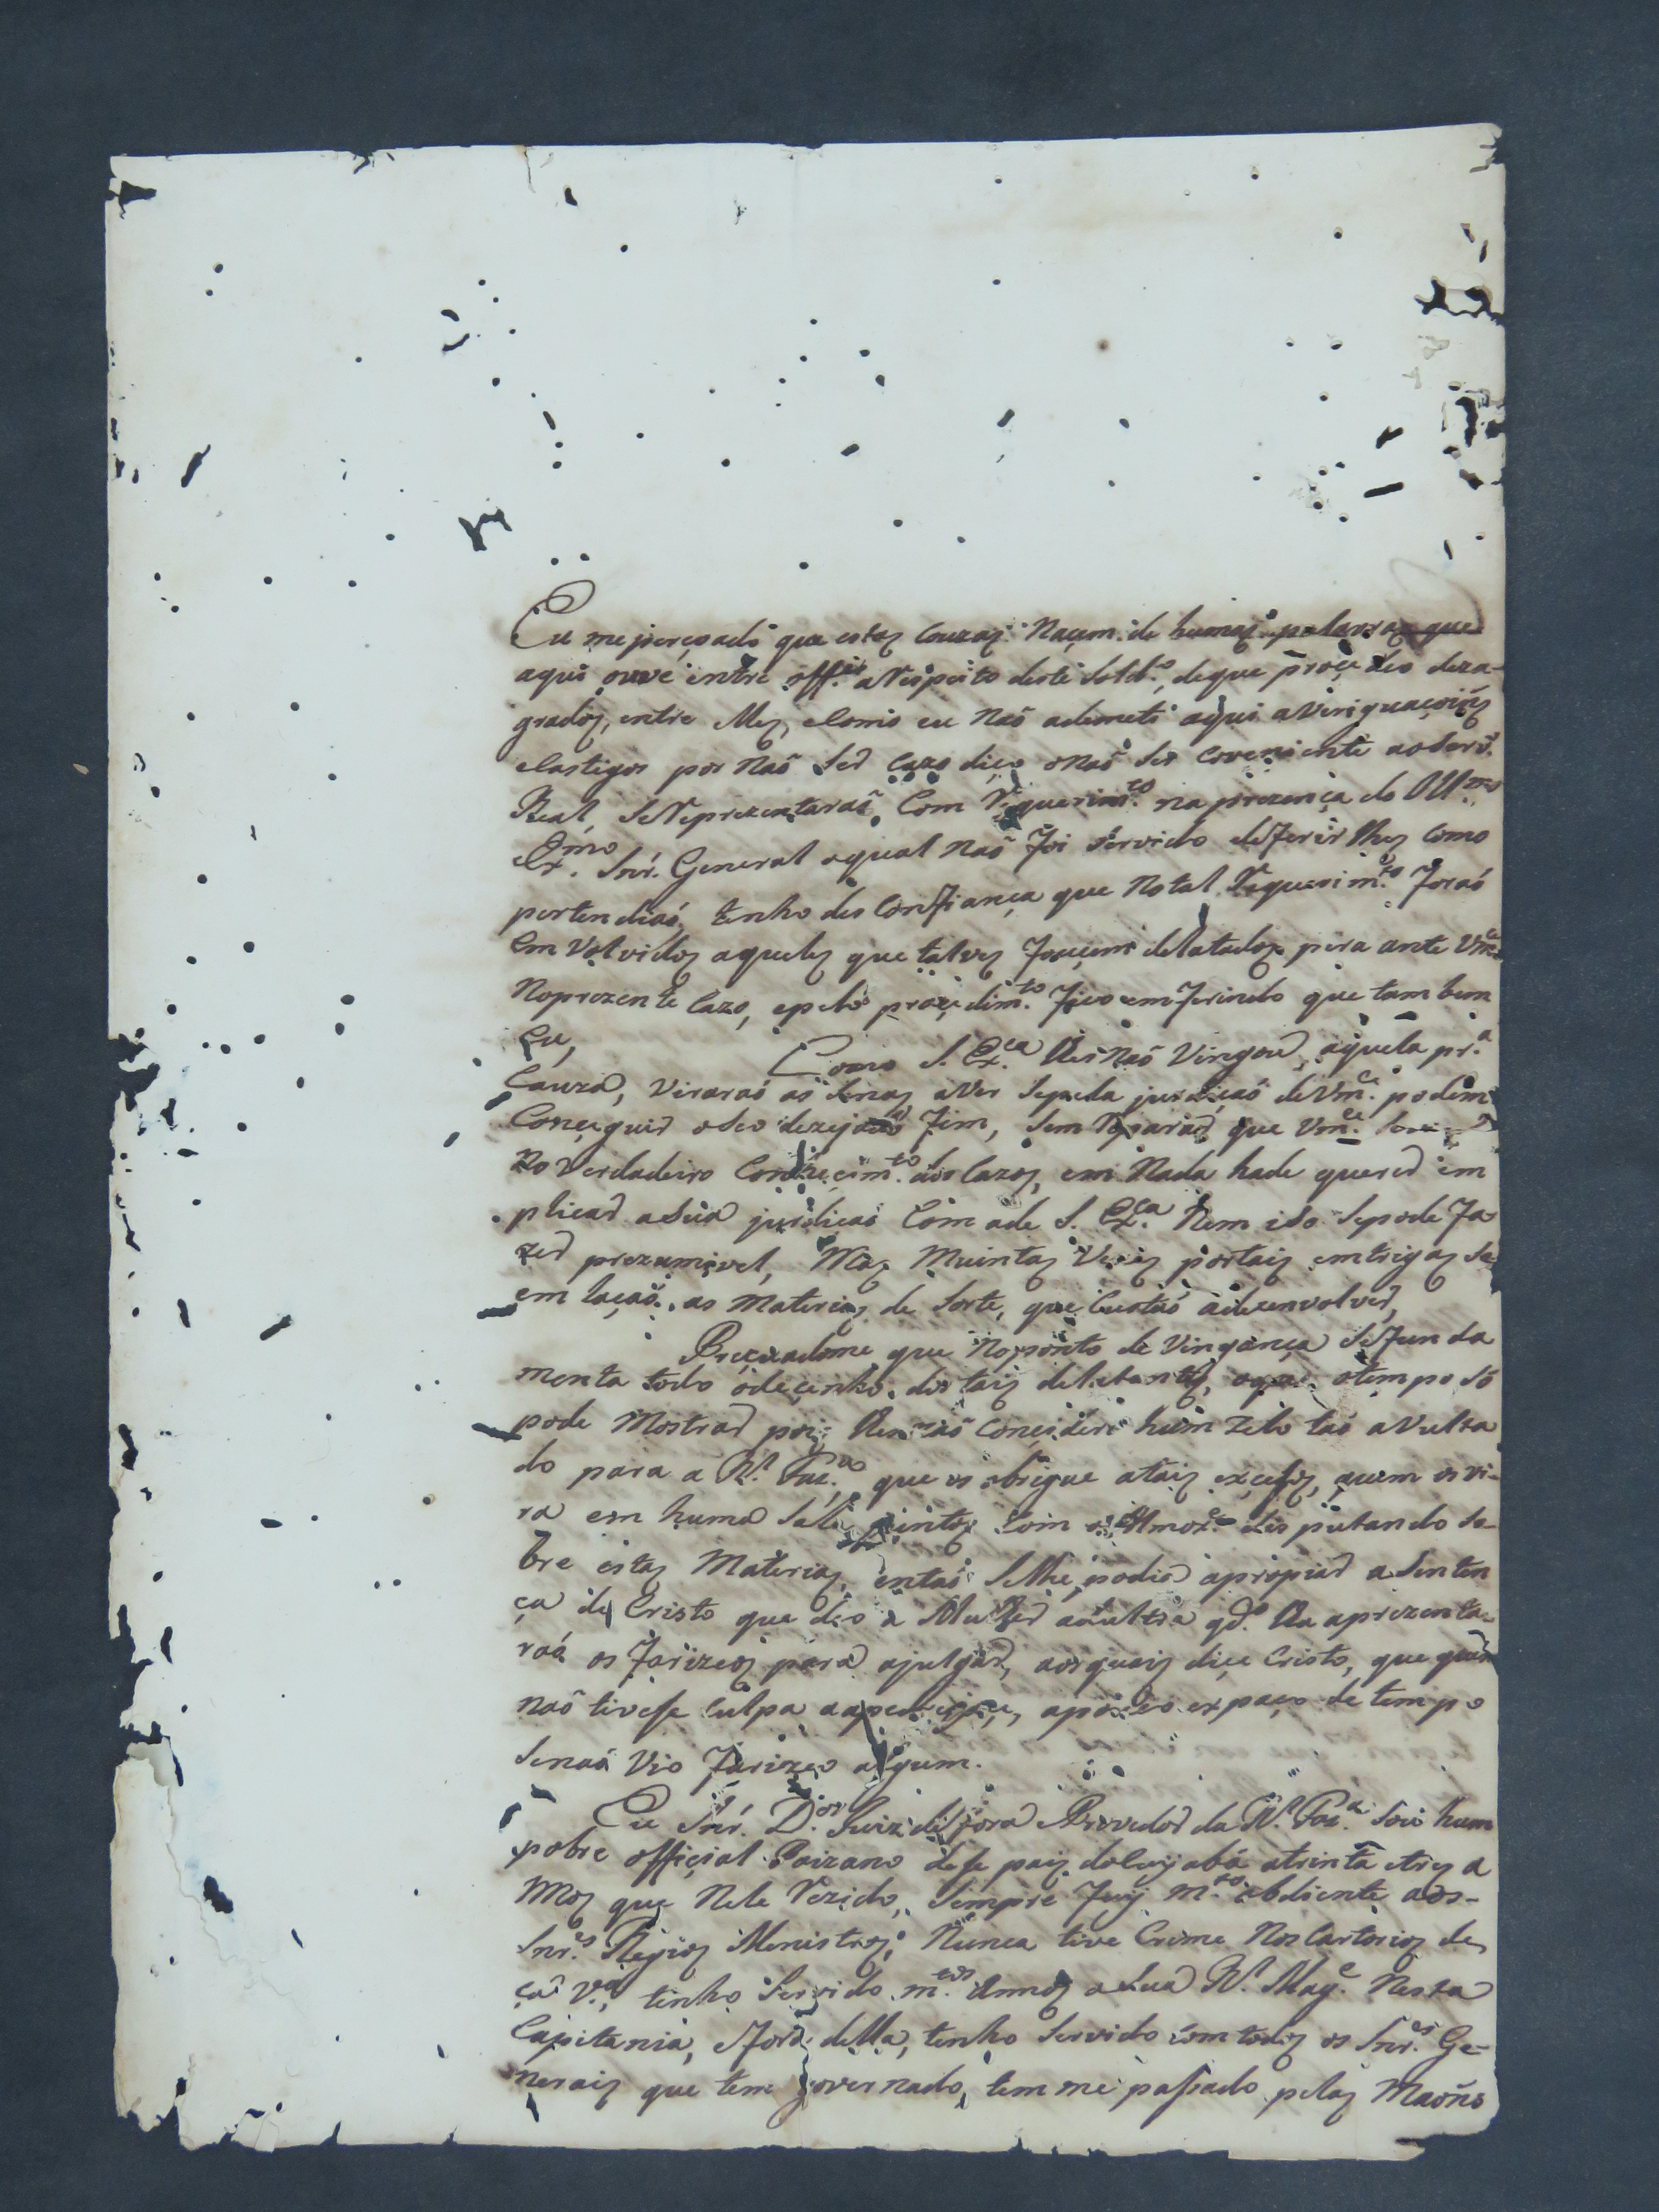 Eu me perçoado que estas couzas naçem de humas palavras que
aqui ouve entre off.es a Respeito deste sold.o, de que proçedeo deza-
grados, entre Mes, e como eu naõ ademeti aqui averiguaçoins
e Castigos por naõ ser cazo diço e naõ ser coveniente ao serv.
Real, se Reprezentaraõ com Requerim.to na prezença do Ill.mo
Ex.mo Snr. General o qual naõ foi servido deferir lhes como
pertendiaõ, tenho desconfiança que no tal Requerim.to foraõ
em volvidos aqueles que talves foçem delatados pera ante Vm.ce
no prezente cazo, e pelo proçedim.to fico emferindo que tam bem
Eu,
Como S. Ex.ca lhes naõ vingou, aquela pr.a
Cauza, viraraõ as senas a ver se pela jurdiçaõ de Vm.ce podem
Conçeguir o seo dezejado fim, sem Reparar que Vm.ce
no verdadeiro conheçim.to dos cazos, em nada hade querer em
plicar a sua jurdicaõ com a de S. Ex.ca nem iso se pode fa
zer prezumivel, Mas muintas vezes por tais emtrigas se
em laçaõ as materias de sorte, que custaõ a dezenvolver,
Preçuadome que no ponto de vingança se funda
menta todo o deçenho dos tais delatantes, o que o tempo só
pode mostrar pois lhes naõ conçidero hum zelo taõ avulta
do para a R.l Faz.da que os obrigue a tais exçeços, quem os vi-
ra em huma sala juntos com o Almox.e disputando so-
bre estas materias, entaõ se lhe podia apropiar a senten
ça de Cristo que deo a Mulher adultra qd.o lha aprezenta-
raõ os farizeos para a julgar, aos quais diçe Cristo, que quem
naõ tivese culpa a apedrejaçe, apos do expaço de tempo
se naõ vio farizeo algum.
Eu Snr. D.or Juiz de fora Provedor da R.l Faz.a sou hum
pobre offiçial Paizano dese pais do Cuyabá a trinta e tres a
nos que nele Rezido, sempre fuy m.to obdiente aos-
Snr.es Regios Ministros, nunca tive crime nos Cartorios de
ça V.a, tenho servido m.tos annos a sua R.l Mag.e nesta
Capitania, e fora della, tenho servido com todos os Snr.es Ge-
nerais que tem governado, tem me pasado pelas maõns